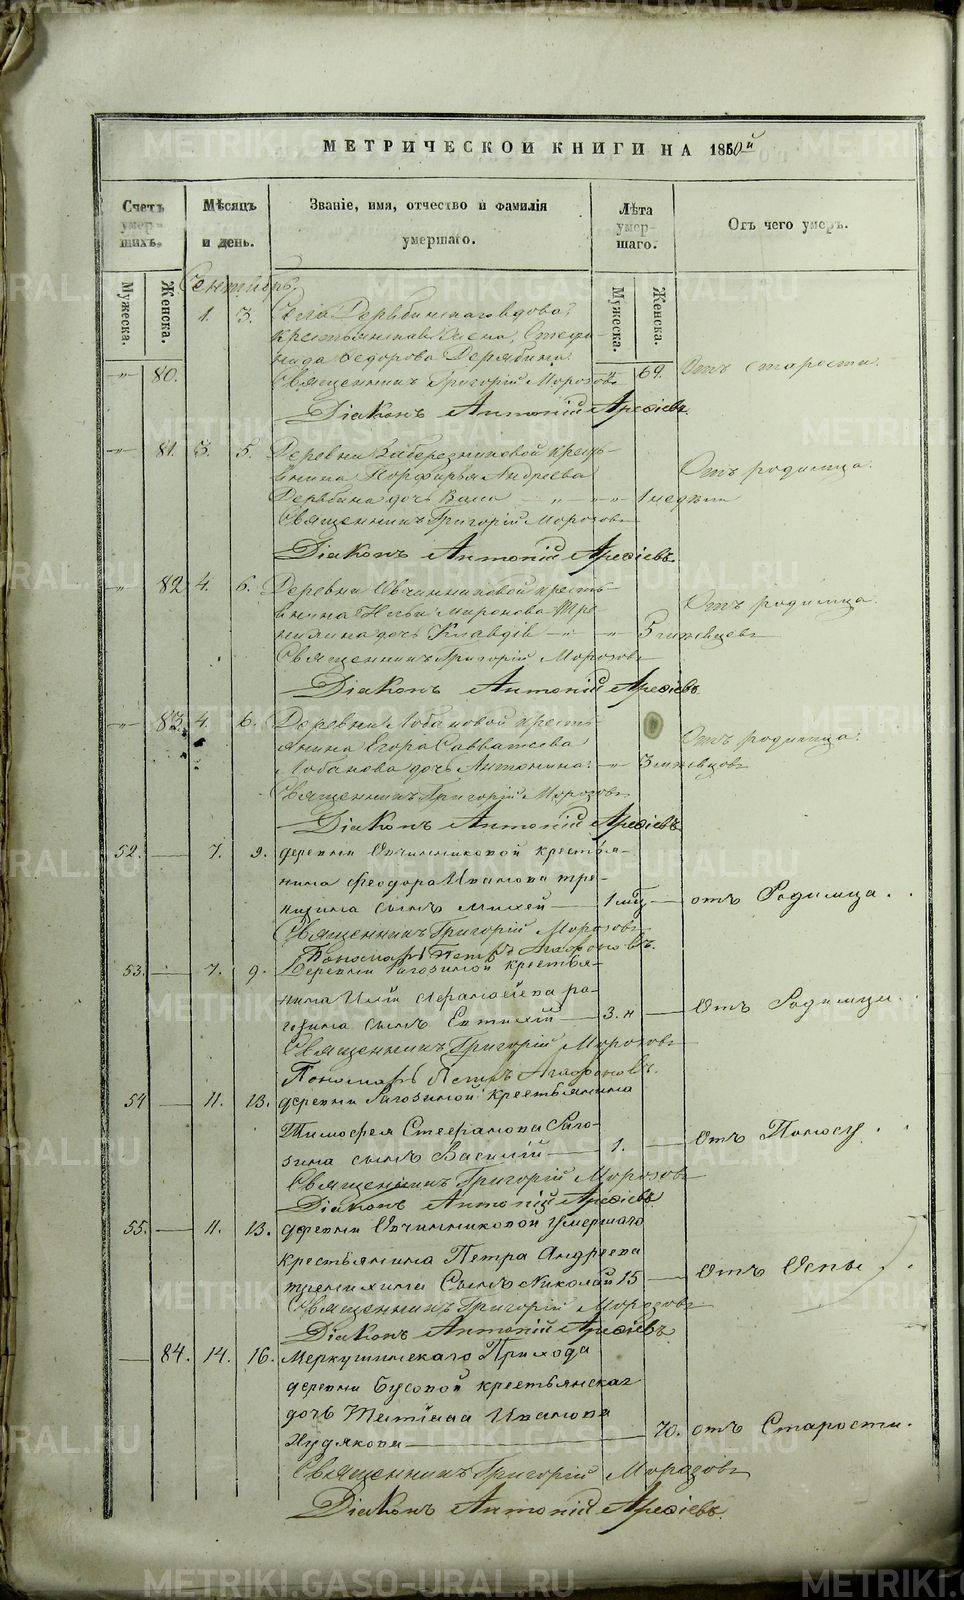 МЕТРИЧЕСКОЙ КНИГИ НА 1850й
Счетъ умершихъ.
Мѣсяцъ и день.
Званіе, имя, отчество и фамилія умершаго.
Лѣта умершаго.
Отъ чего умеръ.
Мужеска.
Женска.
Мужеска.
Женска.
Сентябрь.
1. 3. Села Дерябинскаго вдова,
крестьянская жена, Стефа-
нида Федорова Дерябина.
" 80. 69. Отъ старости.
Священникъ Григорій Морозовъ
Діаконъ Антоній Арефіевъ.
" 81. 3. 5. Деревни крестья-
нина Порфирья Андреева
Отъ родимца.
Дерябина дочь " " " 1 недѣли
Священникъ Григорій Морозовъ
Діаконъ Антоній Арефіевъ.
" 82 4. 6. Деревни Овчинниковой кресть-
янина Ильи Миронова Тре-
Отъ родимца.
нихина дочь Клавдія " " 5 мѣсяцевъ
Священникъ Григорій Морозовъ
Діаконъ Антоній Арефіевъ
" 83. 4. 6. Деревни Лобановой кресть-
янина Егора Савватеева
Отъ родимца.
Лобанова дочь Антонина. " 3 мѣсяцовъ
Священникъ Григорій Морозовъ
Діаконъ Антоній Арефіевъ
52. 7. 9. деревни Овчинниковой крестья-
нина Феодора Иванова тре-
нихина сынъ Михей 1 мѣс. отъ Родимца.
Священникъ Григорій Морозовъ
Пономарь Петръ Агафоновъ.
53. 7. 9. Деревни Рагозиной крестья-
нина Иліи ра-
гозина сынъ Евтихій 3. н Отъ Родимца.
Священникъ Григорій Морозовъ
Пономарь Петръ Агафоновъ.
54 11. 13. деревни Рагозиной крестьянина
Тимофея Стефанова Раго-
зина сынъ Василій 1. Отъ Поносу.
Священникъ Григорій Морозовъ
Діаконъ Антоній Арефіевъ.
55. 11. 13. деревни Овчинниковой умершаго
крестьянина Петра Андреева
тренихина Сынъ Николай 15 Отъ Оспы.
Священникъ Григорій Морозовъ
Діаконъ Антоній Арефіевъ.
84. 14. 16. Меркушинскаго Прихода
деревни Бусовой крестьянская
дочь Татіана Иванова
Худякова 70. отъ Старости.
Священникъ Григорій Морозовъ
Діаконъ Антоній Арефіевъ.
METRIKI.GASO-URAL.RU